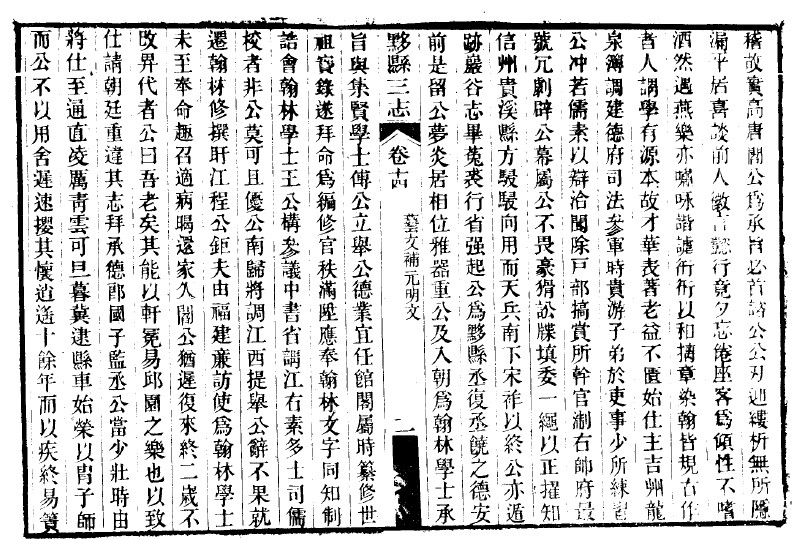 稽故實高唐閻公爲承旨必首諮公公刃迎縷析無所隱
漏平居喜談前人徽言懿行竟夕忘倦座客爲傾性不嗜
酒然遇燕樂亦嘯咏諧謔衎衎以和摛章染翰皆規古作
者人謂學有源本故才華表著老益不匱始仕主吉州龍
泉簿調建德府司法參軍時貴游子弟於吏事少所練習
公冲若儒素以辯洽聞除戸部犒賞所幹官淛右帥府最
號冗劇辟公幕屬公不畏豪猾訟牒填委一繩以正擢知
信州貴溪縣方駸駸向用而天兵南下宋祚以終公亦遁
跡巖谷志畢菟裘行省强起公爲黟縣丞復丞饒之德安
前是留公夢炎居相位雅器重公及入朝爲翰林學士承
黟縣三志 卷十四 藝文補元明文 二
旨與集賢學士傅公立舉公德業宜任館閣屬時纂修世
祖實錄遂拜命爲編修官秩滿陞應奉翰林文字同知制
誥會翰林學士王公構參議中書省謂江右素多士司儒
校者非公莫可且優公南歸將調江西提舉公辭不果就
遷翰林修撰旴江程公鉅夫由福建亷訪使爲翰林學士
未至奉命趣召適病暍還家久閣公猶遲復來終二歲不
改畀代者公曰吾老矣其能以軒冕易邱園之樂也以致
仕請朝廷重違其志拜承德郎國子監丞公當少壯時由
將仕至通直凌厲靑雲可旦暮冀逮縣車始榮以胄子師
而公不以用舍遲速攖其懷逍遙十餘年而以疾終易簀